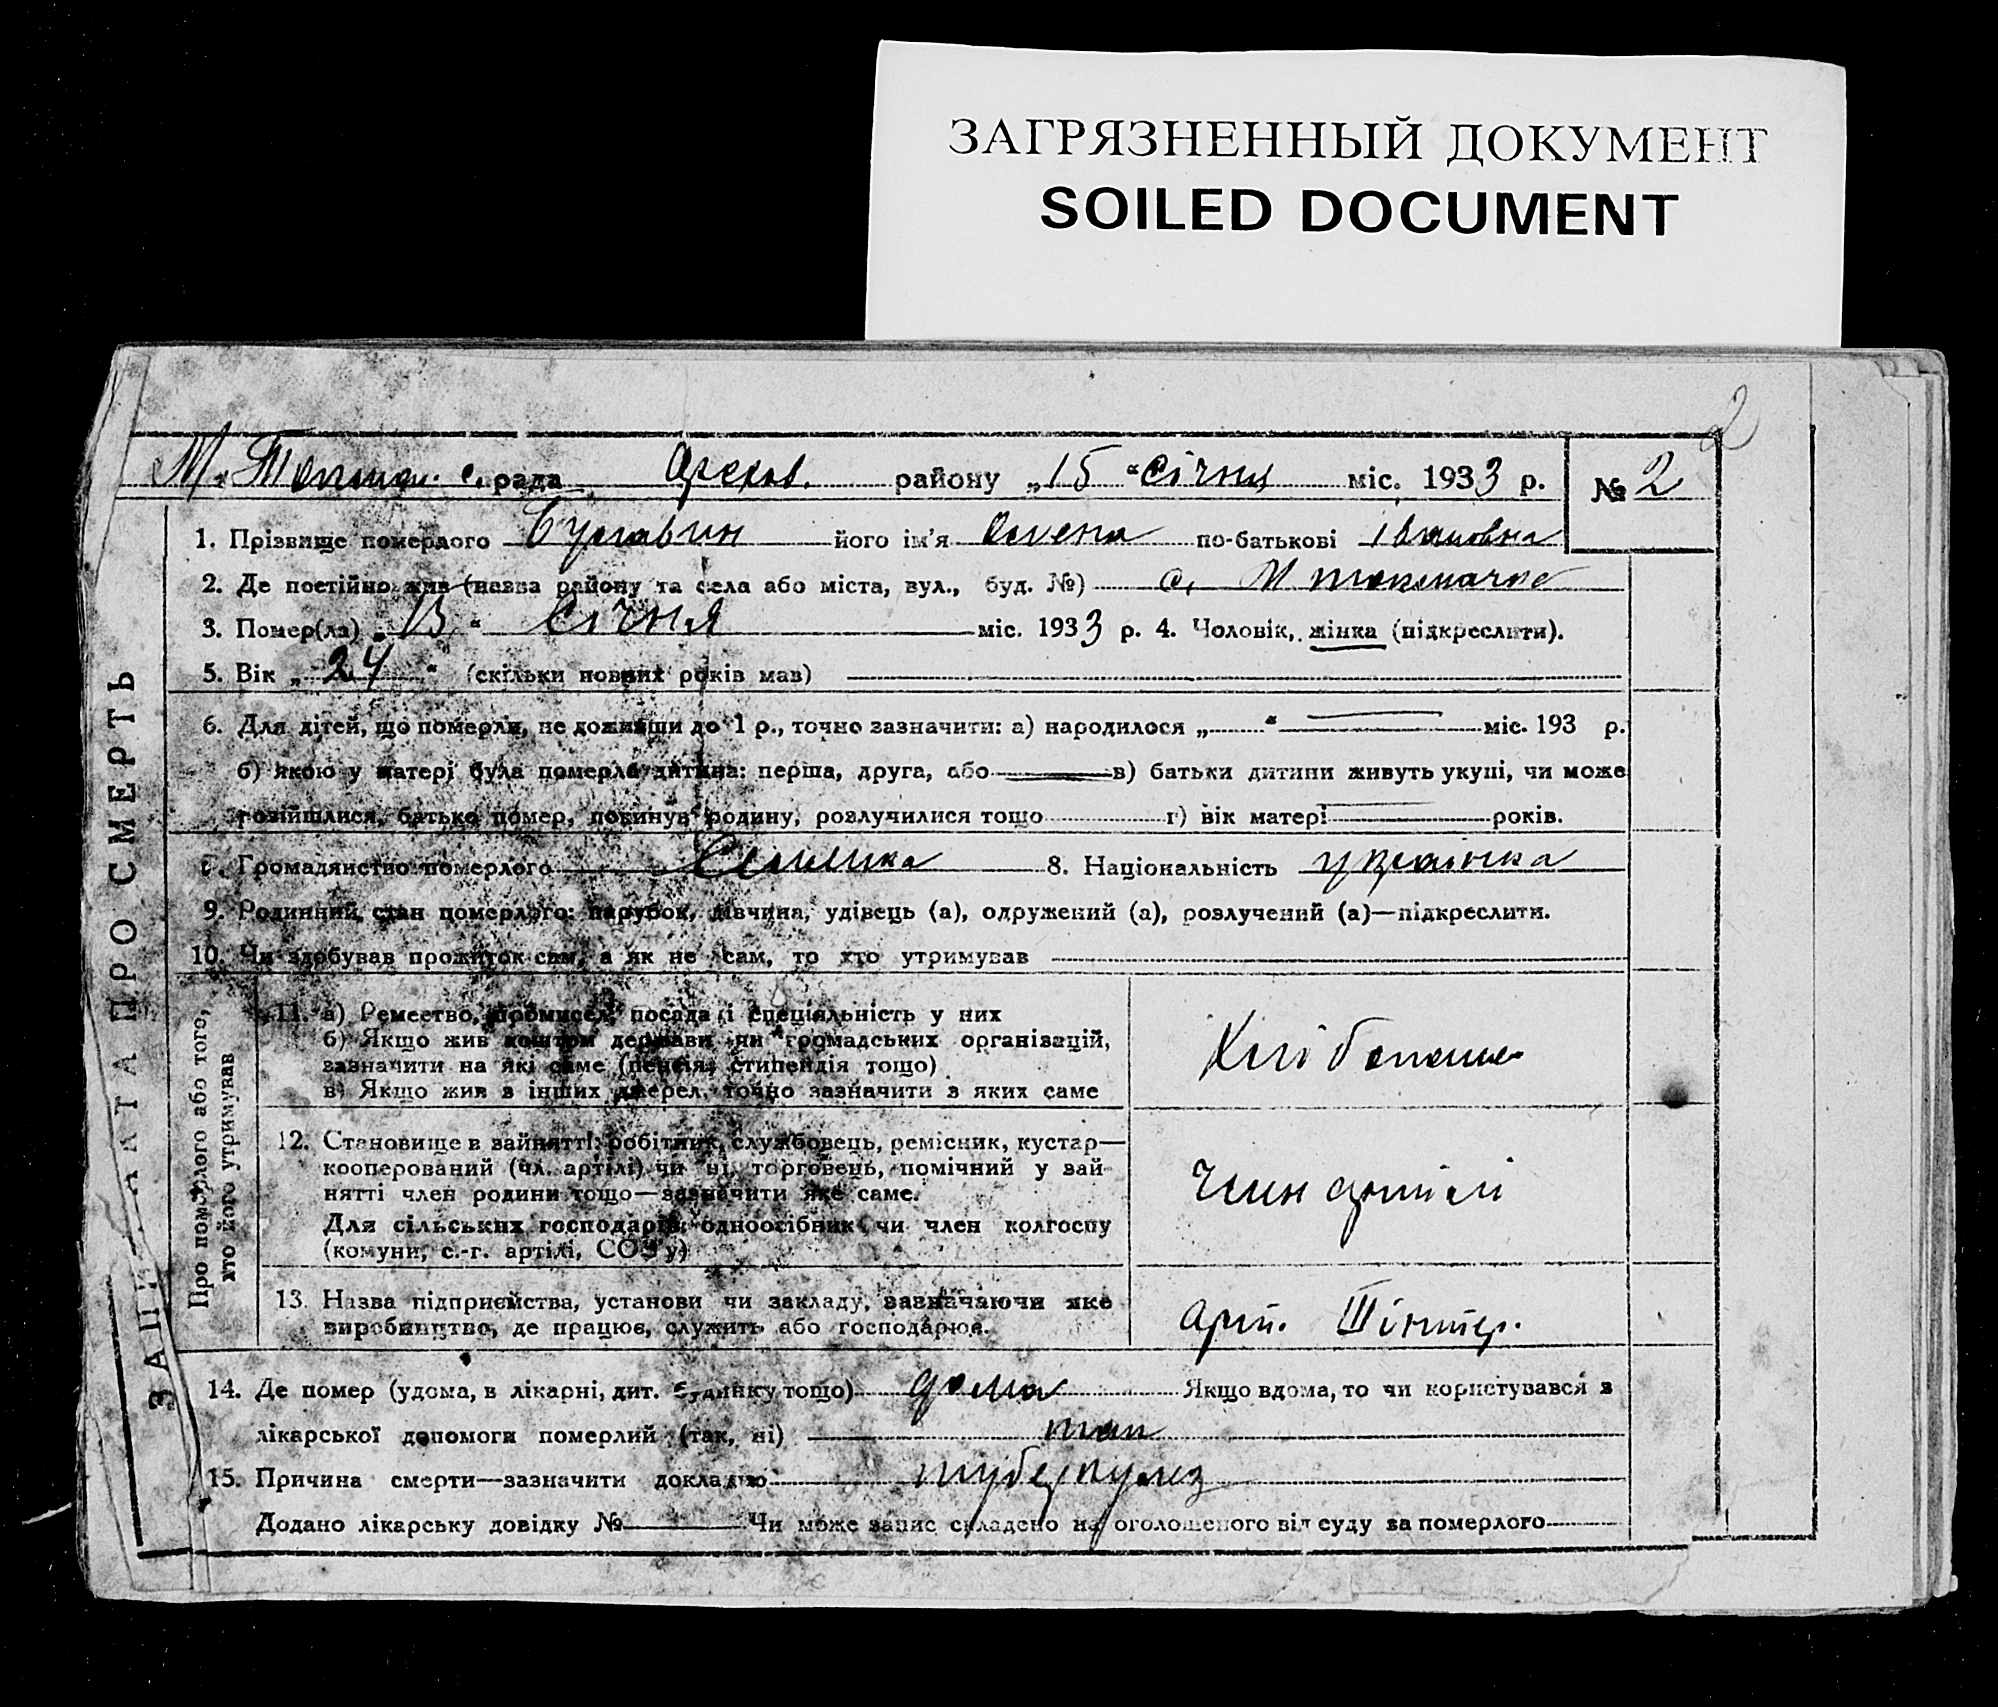 ЗАГРЯЗНЕННЫЙ ДОКУМЕНТ
SOILED DOCUMENT
2
М. Токмац. с. рада Орехов. району „15“ січня міс. 1933 р. № 2
1. Прізвище померлого його ім'я Олена по-батькові Івановна
2. Де постійно жив (назва району та села або міста, вул., буд. №) с. М Токмачка
3. Помер(ла) „13“ Січня міс. 1933 р. 4. Чоловік, жінка (підкреслити).
5. Вік „24“ (скільки повних років мав)
6. Для дітей, що померли, не доживши до 1 р., точно зазначити: а) народилося „ “ міс. 193 р.
б) якою у матері була померла дитина: перша, друга, або в) батьки дитини живуть укупі, чи може
розійшлися, батько помер, покинув родину, розлучилися тощо г) вік матері років.
7. Громадянство померлого 8. Національність українка
9. Родинний стан померлого: парубок, дівчина, удівець (а), одружений (а), розлучений (а)—підкреслити.
10. Чи здобував прожиток сам, а як не сам, то хто утримував
ЗАПИ АКТА ПРО СМЕРТЬ
Про померлого або того,
хто його утримував
11. а) Ремество, промисел, посада і спеціяльність у них
б) Якщо жив коштом держави чи громадських організацій,
зазначити на які саме (пенсія, стипендія тощо)
в) Якщо жив з інших джерел, точно зазначити з яких саме
Хлібопаше
12. Становище в занятті: робітник, службовець, ремісник, кустар—
кооперований (чл. артілі) чи ні, торговець, помічний у зай-
нятті член родини тощо—зазначити яке саме.
Для сільських господарів: одноосібник чи член колгоспу
(комуни, с.-г. артілі, СОЗ'у)
Член артілі
13. Назва підприємства, установи чи закладу, зазначаючи яке
виробництво, де працює, служить або господарює.
Арт. ІІІ Інтер.
14. Де помер (удома, в лікарні, дит. будинку тощо) дома Якщо вдома, то чи користувався з
лікарської допомоги померлий (так, ні) так
15. Причина смерти—зазначити докладно туберкульз
Додано лікарську довідку № Чи може запис складено на оголошеного від суду за померлого